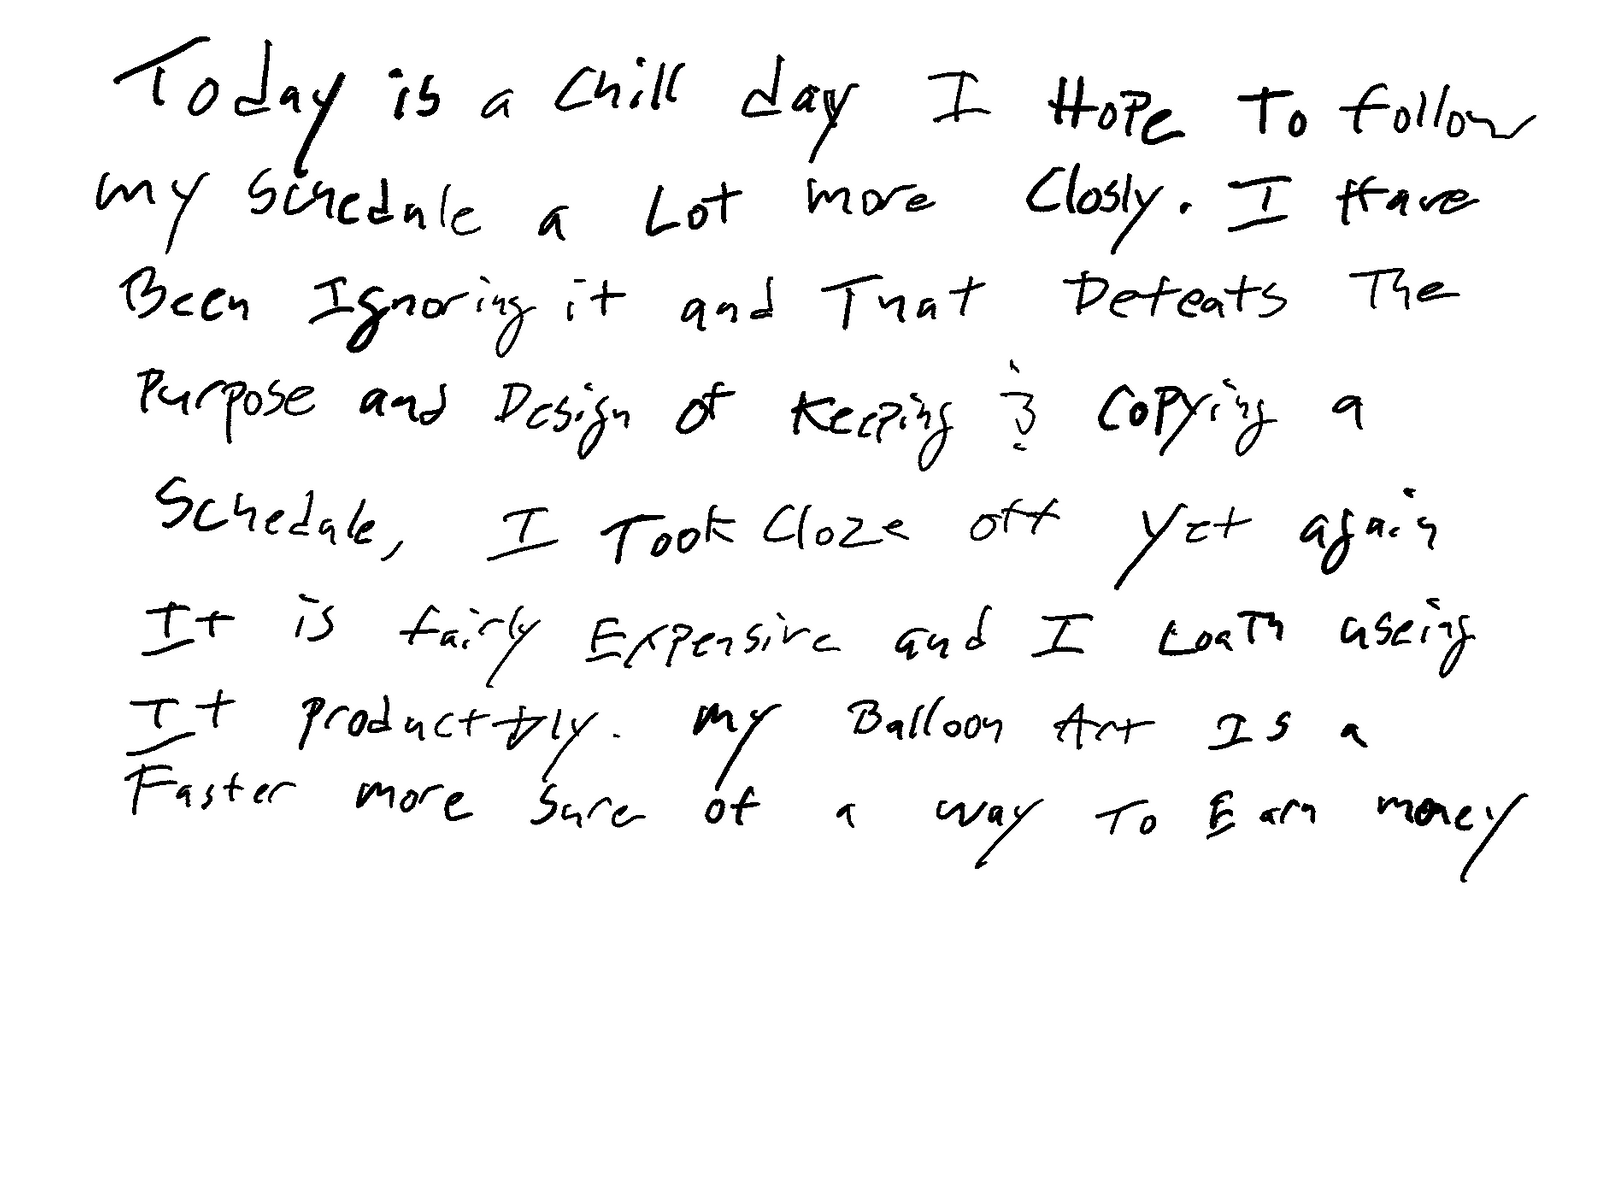 Today is a Chill day I Hope To follow
my Schedule a Lot more Closly. I Have
Been Ignoring it and That Defeats The
Purpose and Design of Keeping & Copying a
Schedule, I Took Cloze off Yet again
It is fairly Expensive and I Loath useing
It . My Balloon Art Is a
Faster more sure of a way To Earn money